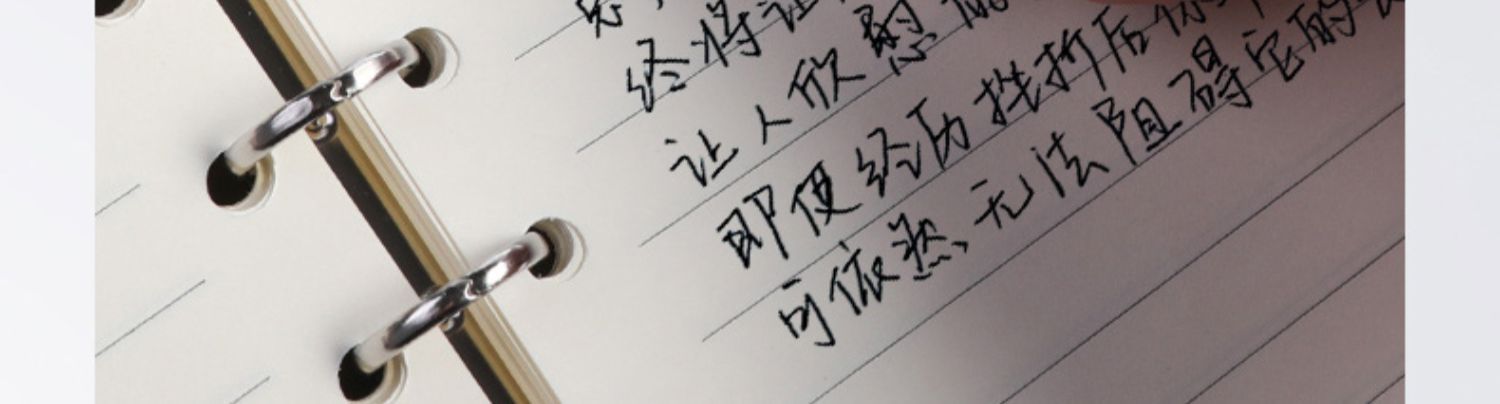 终将让
让人欣慰
即便经历挫折后你
可依然无法阻碍它的